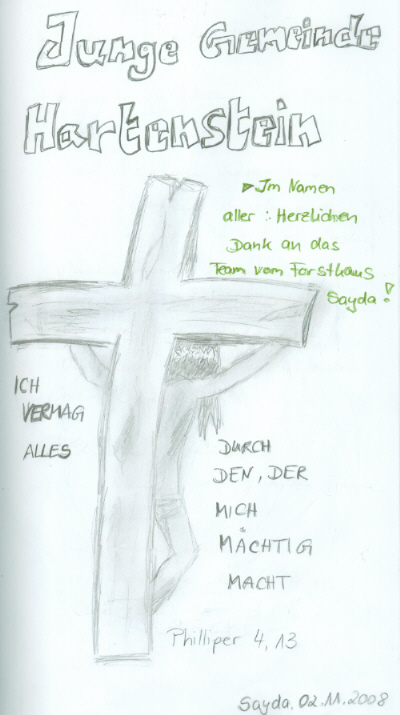 Junge Gemeinde
Hartenstein
Im Namen
aller : Herzlichen
Dank an das
Team vom Forsthaus
Sayda!
ICH
VERMAG
ALLES
DURCH
DEN, DER
MICH
MÄCHTIG
MACHT
Philliper 4, 13
Sayda, 02.11.2008